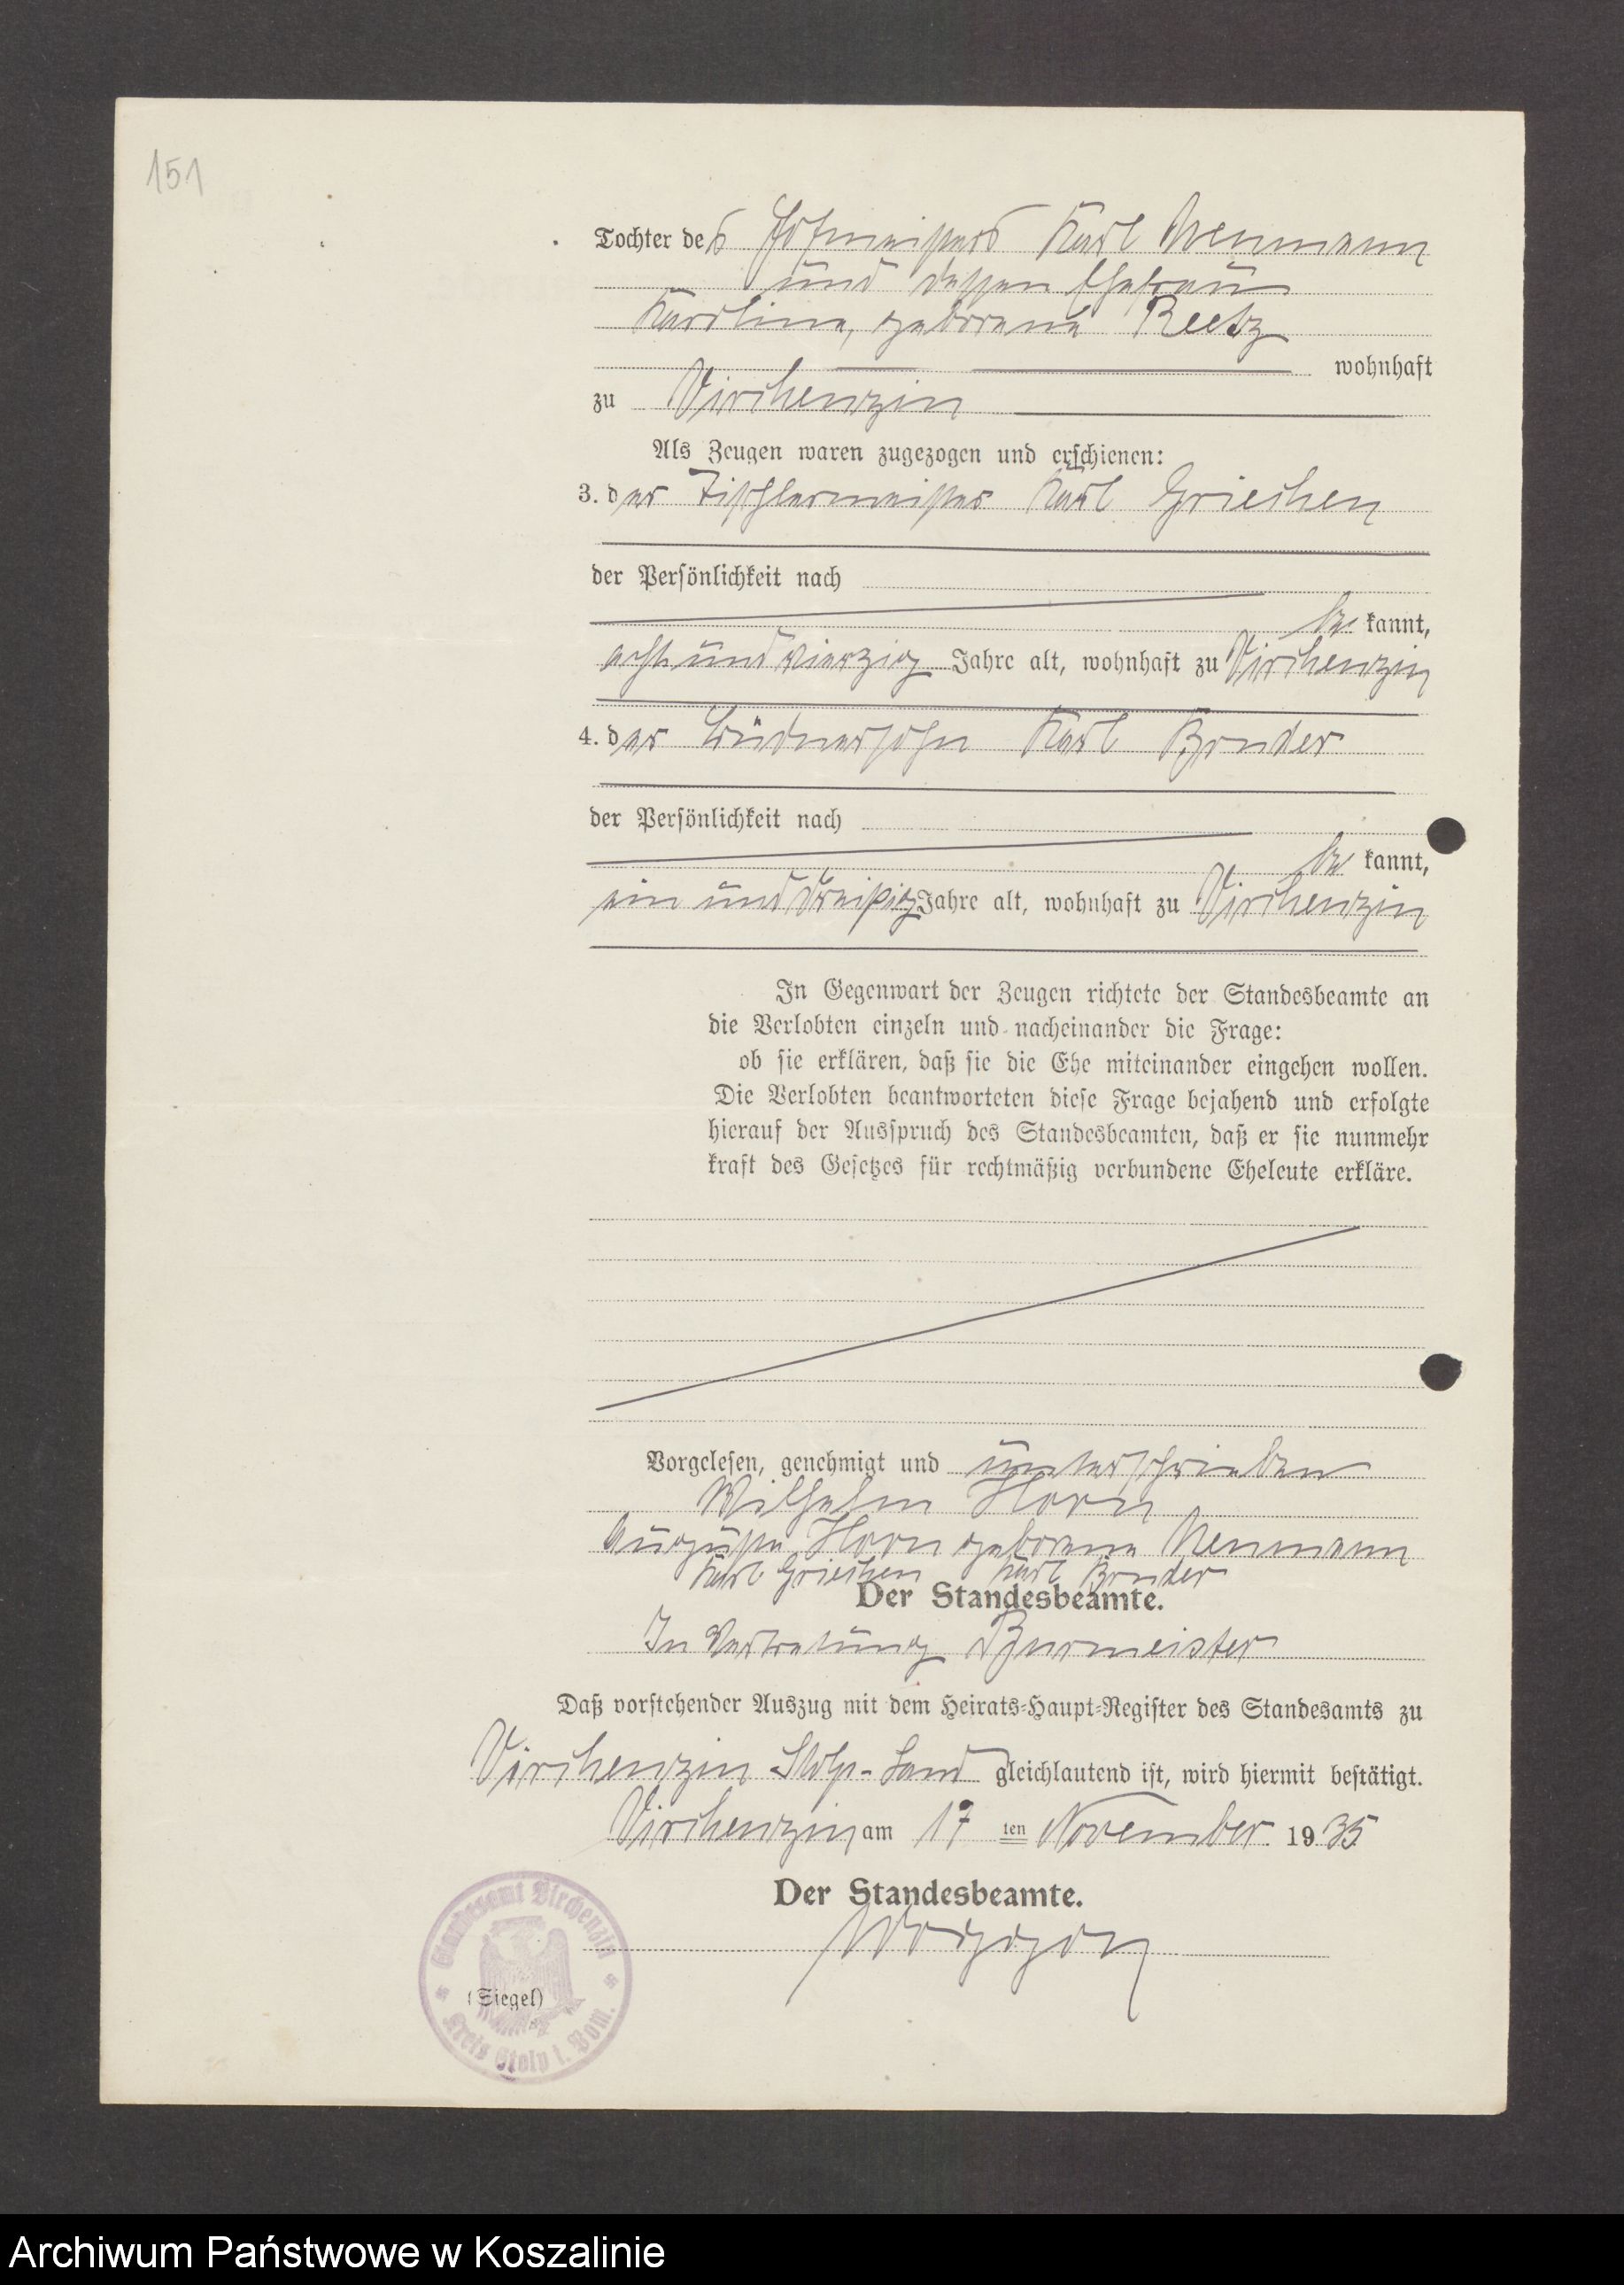 151
Tochter des Hofmeisters Karl Neumann
und dessen Ehefrau
Karoline, geborene Reetz
wohnhaft
zu Virchenzin
Als Zeugen waren zugezogen und erschienen:
3. der Tischlermeister Karl Griechen
der Persönlichkeit nach
be kannt,
acht und vierzig Jahre alt, wohnhaft zu Virchenzin
4. der Büdnersohn Karl Bruder
der Persönlichkeit nach
be kannt,
ein und dreißig Jahre alt, wohnhaft zu Virchenzin
In Gegenwart der Zeugen richtete der Standesbeamte an
die Verlobten einzeln und nacheinander die Frage:
ob sie erklären, daß sie die Ehe miteinander eingehen wollen.
Die Verlobten beantworteten diese Frage bejahend und erfolgte
hierauf der Ausspruch des Standesbeamten, daß er sie nunmehr
kraft des Gesetzes für rechtmäßig verbundene Eheleute erkläre.
Vorgelesen, genehmigt und unterschrieben
Wilhelm Horn
Auguste Horn geborene Neumann
Karl Griechen Karl Bruder
Der Standesbeamte.
In Vertretung Burmeister
Daß vorstehender Auszug mit dem Heirats-Haupt-Register des Standesamts zu
Virchenzin Stolp-Land gleichlautend ist, wird hiermit bestätigt.
Virchenzin am 17 ten November 1935
Der Standesbeamte.
(Siegel)
Standesamt Virchenzin
Kreis Stolp i. Pom.
Archiwum Państwowe w Koszalinie